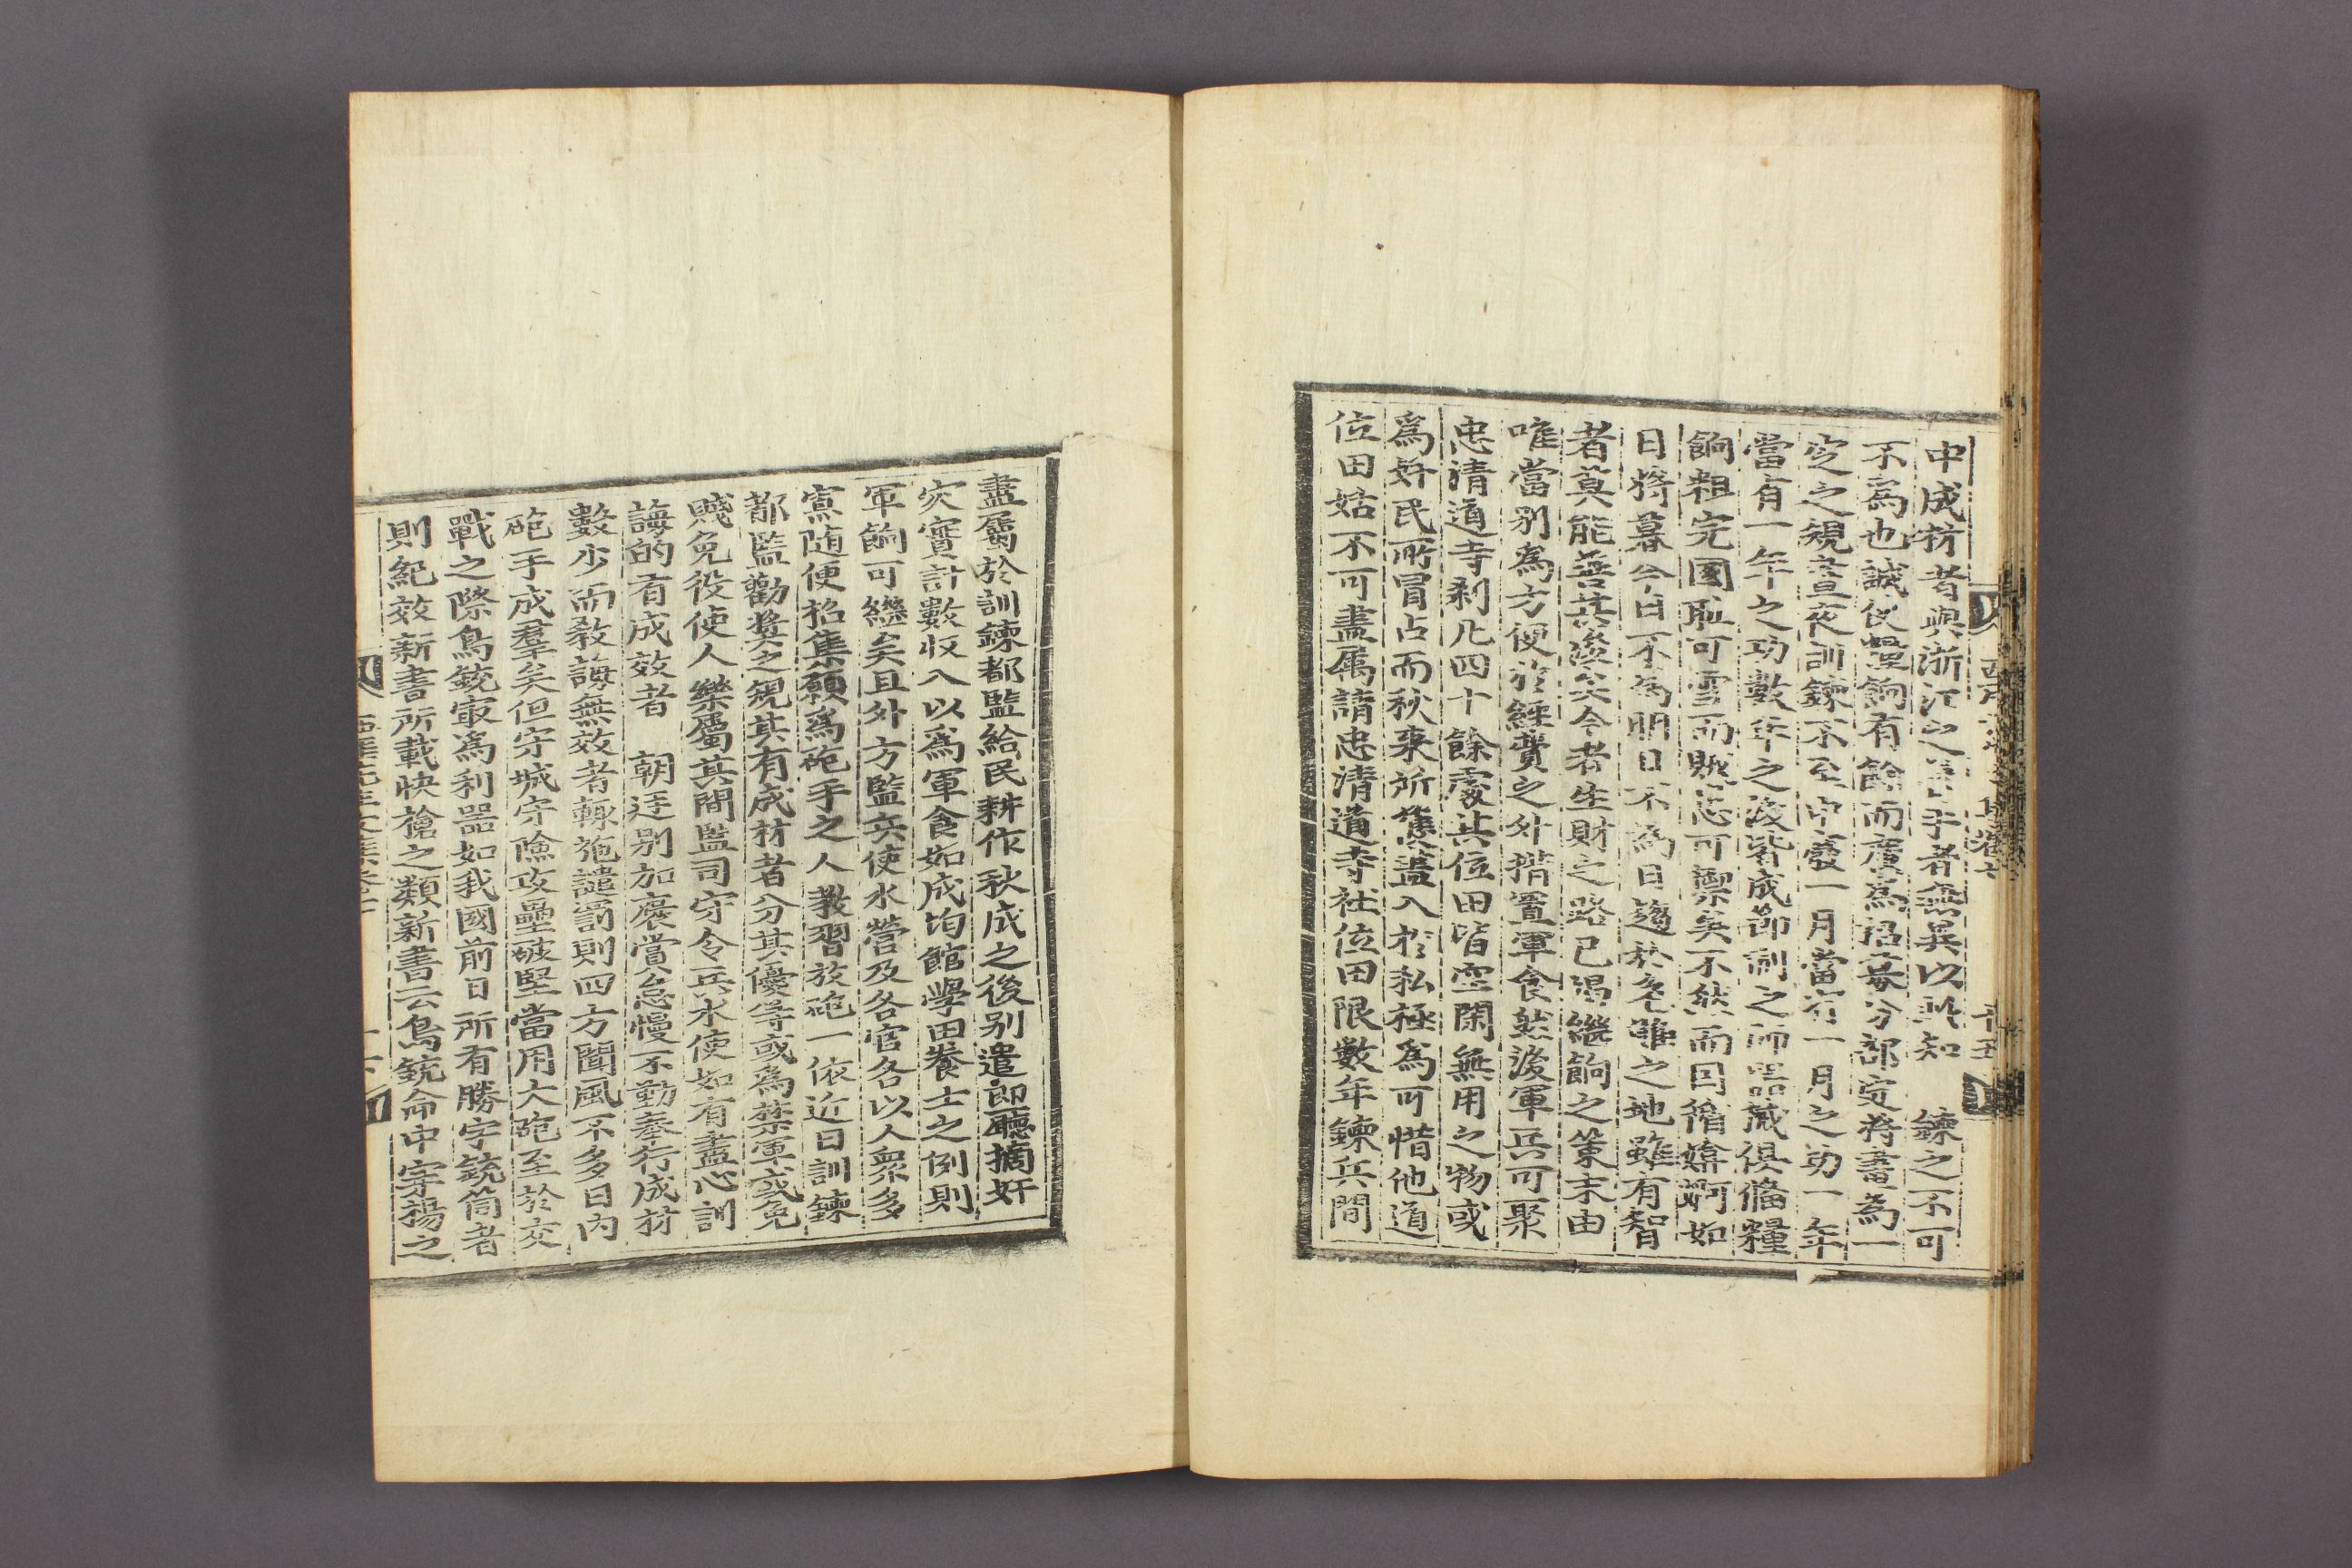 中成材者與浙江之手者無異以此知 鍊之不可
不爲也誠使粮餉有餘而廣爲招募分部定將畫爲一
定之規晝夜訓鍊不至中廢一月當有一月之功一年
當有一年之功數年之後皆成節制之師器械俱備糧
餉粗完國耻可雪而賊忠可禦矣不然而因循媕婀如
日將暮今日不爲明日不爲日趨於危亂之地雖有智
者莫能善其後矣今者生財之路已渴繼餉之策末由
唯當別爲方便於經費之外措置軍食然後軍兵可聚
忠清道寺刹凡四十餘處其位田皆空閑無用之物或
爲奸民所冒占而秋來所收盡入於私極爲可惜他道
位田姑不可盡屬請忠清道寺社位田限數年鍊兵間
盡屬於訓鍊都監給民耕作秋成之後別遣郎廳摘奸
灾實計數收入以爲軍食如成均館學田養士之例則
軍餉可繼矣且外方監兵使水營及各官各以人衆多
寡随便招集願爲砲手之人敎習放砲一依近日訓鍊
都監勸奬之規其有成材者分其優等或爲禁軍或免
賤免役使人樂屬其間監司守令兵水使如有盡心訓
誨的有成效者 朝廷別加褒賞怠慢不勤奉行成材
數少而敎誨無效者輒施譴罰則四方聞風不多日內
砲手成羣矣但守城守險攻壘破堅當用大砲至於交
戰之際鳥銃㝡爲利器如我國前日所有勝字銃筒者
則紀效新書所載快搶之類新書云鳥銃命中穿楊之